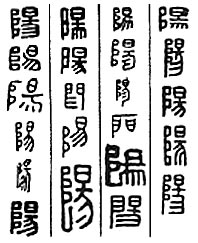 陽陽陽陽陽
陽陽陽陽陽
陽陽陽陽
陽陽陽陽陽陽